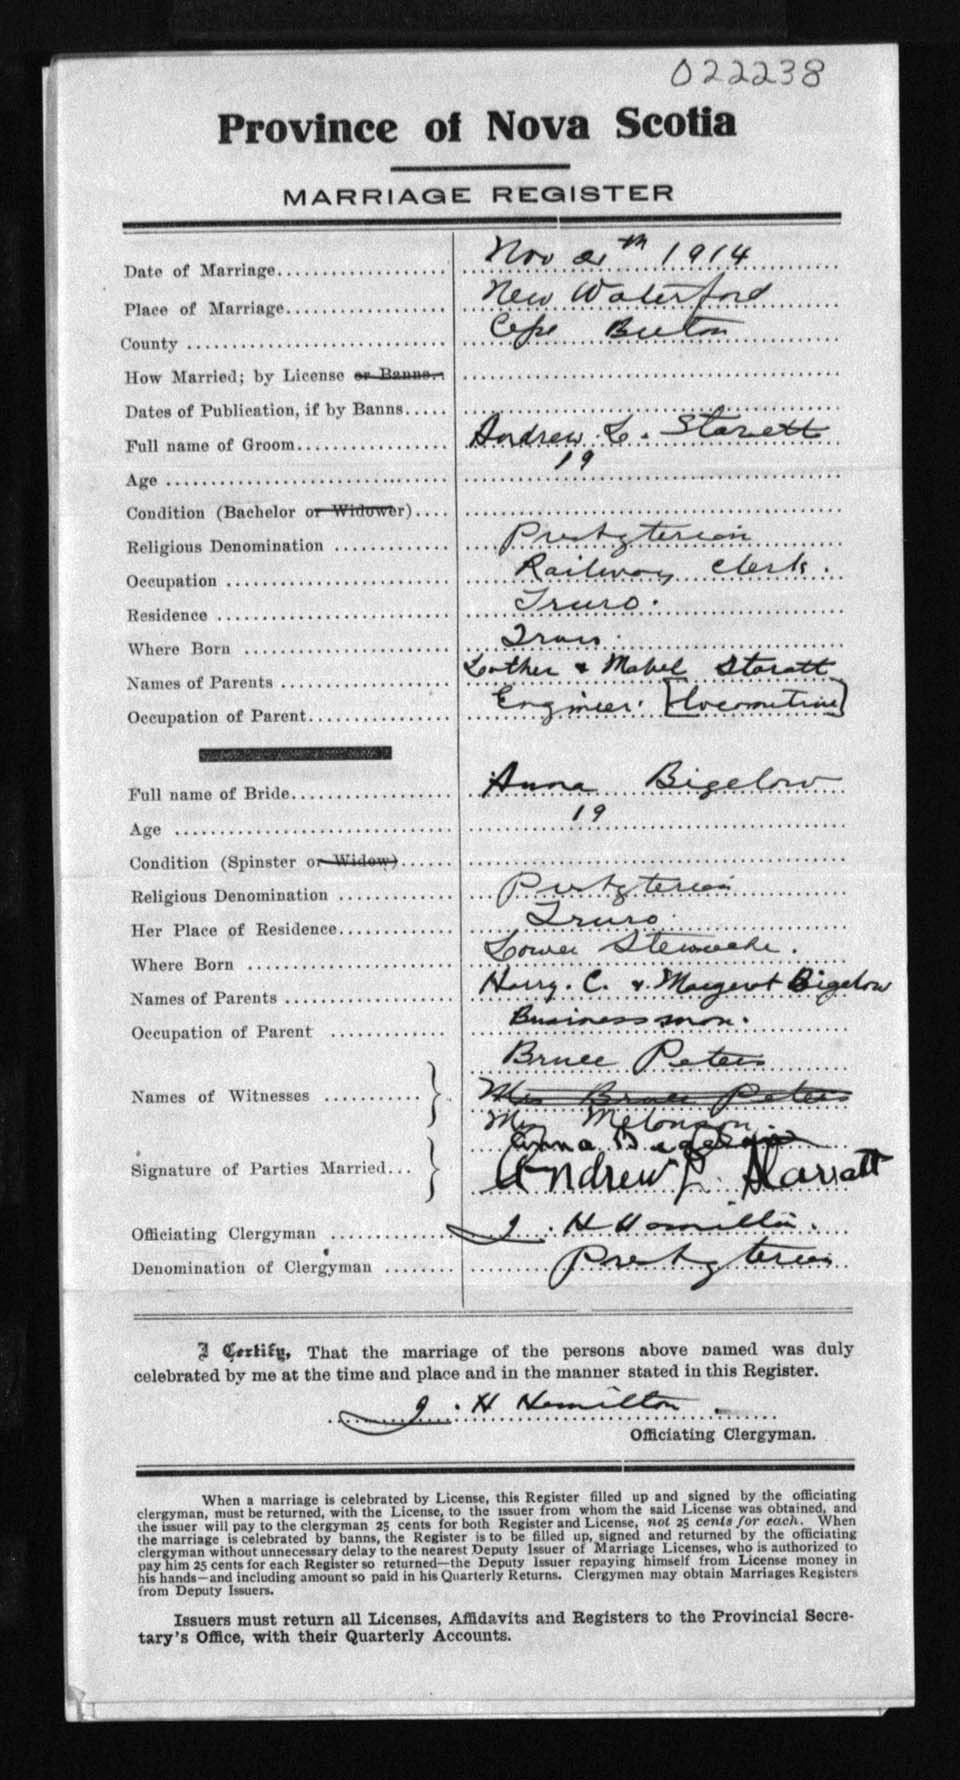 022238
Province of Nova Scotia
MARRIAGE REGISTER
Date of Marriage.................... Nov 1914
Place of Marriage................... New Waterford
County .............................. Cape Breton
How Married; by License or Banns.
Dates of Publication, if by Banns.....
Full name of Groom.................. Andrew L. Starett
Age ................................. 19
Condition (Bachelor or Widower)....
Religious Denomination ............. Presbyterian
Occupation .......................... Railway Clerk.
Residence ........................... Truro.
Where Born ......................... Truro.
Names of Parents ................... Luther & Mabel Staratt
Occupation of Parent................. Engineer. [Locomotive]
Full name of Bride................... Anna Bigelow
Age ................................. 19
Condition (Spinster or Widow)......
Religious Denomination ............. Presbyterian
Her Place of Residence.............. Truro.
Where Born ......................... Lower Stewiacke.
Names of Parents ................... Harry. C. & Margaret Bigelow
Occupation of Parent ............... Business man.
Bruce Peters
Names of Witnesses ............ } Mrs Bruce Peters
Mrs
Anna
Signature of Parties Married... } Andrew L. Starratt
Officiating Clergyman ............. J. H Hamilton.
Denomination of Clergyman ........ Presbyterian
I Certify, That the marriage of the persons above named was duly
celebrated by me at the time and place and in the manner stated in this Register.
J. H Hamilton
Officiating Clergyman.
When a marriage is celebrated by License, this Register filled up and signed by the officiating
clergyman, must be returned, with the License, to the issuer from whom the said License was obtained, and
the issuer will pay to the clergyman 25 cents for both Register and License, not 25 cents for each. When
the marriage is celebrated by banns, the Register is to be filled up, signed and returned by the officiating
clergyman without unnecessary delay to the nearest Deputy Issuer of Marriage Licenses, who is authorized to
pay him 25 cents for each Register so returned—the Deputy Issuer repaying himself from License money in
his hands—and including amount so paid in his Quarterly Returns. Clergymen may obtain Marriages Registers
from Deputy Issuers.
Issuers must return all Licenses, Affidavits and Registers to the Provincial Secre-
tary's Office, with their Quarterly Accounts.